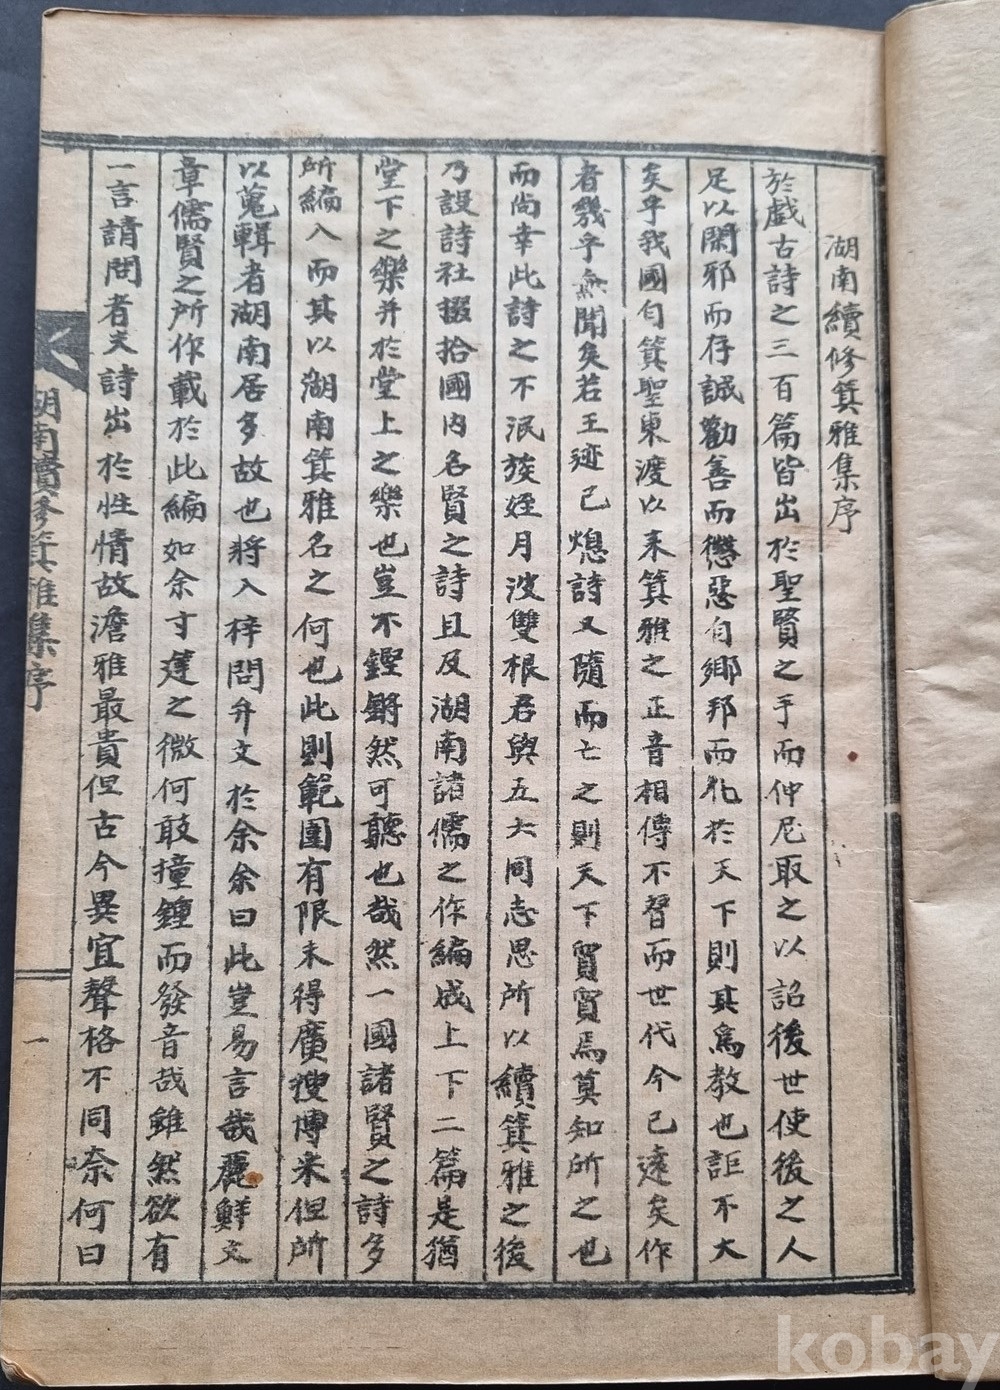 湖南續修箕雅集序
於戱古詩之三百篇皆出於聖賢之手而仲尼取之以詔後世使後之人
足以閑邪而存誠勸善而懲惡自鄉邦而化於天下則其爲敎也詎不大
矣乎我國自箕聖東渡以來箕雅之正音相傳不習而世代今已遠矣作
者幾乎無聞矣若王迹已熄詩又隨而亡之則天下貿貿焉莫知所之也
而尚幸此詩之不泯族姪月波雙根君與五六同志思所以續箕雅之後
乃設詩社掇拾國內名賢之詩且及湖南諸儒之作編成上下二篇是猶
堂下之樂并於堂上之樂也豈不鏗鏘然可聽也哉然一國諸賢之詩多
所編入而其以湖南箕雅名之何也此則範圍有限未得廣搜博采但所
以蒐輯者湖南居多故也將入梓問弁文於余余曰此豈易言哉麗鮮文
章儒賢之所作載於此編如余寸莛之微何敢撞鍾而發音哉雖然欲有
一言請問者夫詩出於性情故澹雅最貴但古今異宜聲格不同奈何曰
湖南續修箕雅集序
一
kobay